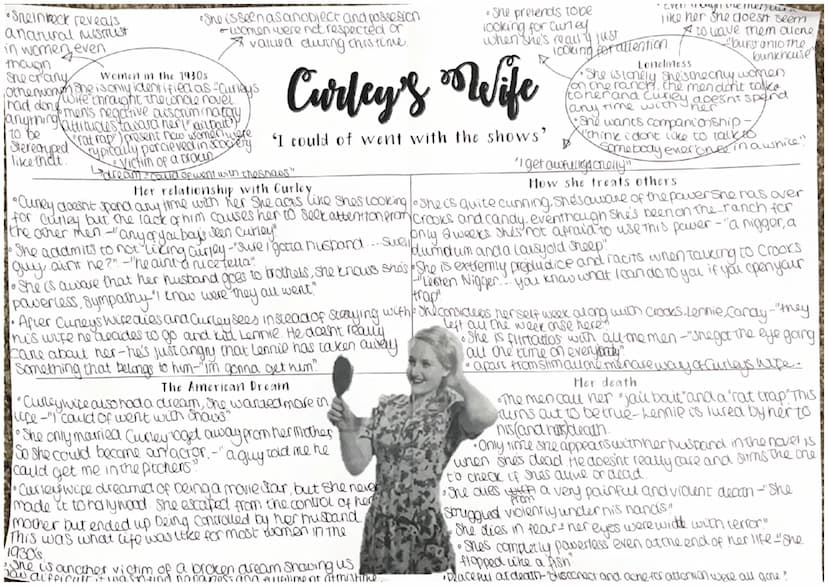 Curley's Wife
'I could of went with the shows'
• She in back reveals
a natural mistrust
in women even
though
she or any
other women
had done
anything
to be
stereotyped
like that.
• She is seen as an object and possesion
- women were not respected or
valued during this time.
Women in the 1930s
• She is only identified as "Curley's
Wife" throught the whole novel
men's negative & discriminatory
attitudes toward her "jailbait"
"rat trap" present how women were
typically percieved in society
• Victim of a broken
dream - "could of went with the shows"
• She pretends to be
looking for Curley
when she's really just
looking for attention
• Even though the men don't
like her she doesn't seem
to leave them alone
- "burst into the
bunkhouse"
Loneliness
• She is lonely. She's the only women
on the ranch. The men don't talk
to her and Curley doesn't spend
any time with her
• She wants companionship -
"think i dont like to talk to
somebody ever' once in a while."
"I get awful lonely"
Her relationship with Curley
• Curley doesn't spend any time with her. She acts like she's looking
for Curley but the lack of him causes her to seek attention from
the other men - "any of you boys seen Curley"
• She addmits to not liking Curley - "Sure i gotta husband... swell
guy, ain't he?" - "he aint a nice fella".
• She is aware that her husband goes to brothels, she knows she's
powerless, sympathy - "I know were they all went."
• After Curleys Wife dies and Curley sees instead of staying with
his wife he decides to go and kill Lennie. He doesnt really
care about her - he's just angry that Lennie has taken away
something that belongs to him - "im gonna get him"
How she treats others
• She is quite cunning. She's aware of the power she has over
Crooks and candy. eventhough she's been on the ranch for
only 2 weeks she's not afraid to use this power - "a nigger, a
dumdum and a lousy old sheep"
• She is extremly prejudice and racits when talking to Crooks
- "Listen Nigger... you know what I can do to you if you open your
trap"
• She considers her self week along with Crooks, Lennie, Candy - "they
left all the week ones here"
• She is flirtatios with all the men - "she got the eye going
all the time on everybody"
• apart from slim all the men are wary of Curley's Wife.
The American Dream
• Curley wife also had a dream, She wanted more in
life - "I could of went with shows"
• She only married Curley to get away from her mother
so she could become an actor. - "a guy told me he
could get me in the pitchers"
• Curley wife dreamed of being a movie star, but she never
made it to hollywood. She escaped from the control of her
mother but ended up being controlled by her husband.
This was what life was like for most women in the
1930s.
She is another victim of a broken dream showing us
Her death
• The men call her "jail bait" and a "rat trap" This
turns out to be true - Lennie is lured by her to
his (and her) death.
• Only time she appears with her husband in the novel is
when she's dead. He doesn't really care and slims the one
to check if she's alive or dead.
• She dies from a very painful and violent death - "She
struggled violently under his hands"
• She dies in fear - "her eyes were wide with terror"
• She's completly powerless even at the end of her life - "She
flopped like a fish"